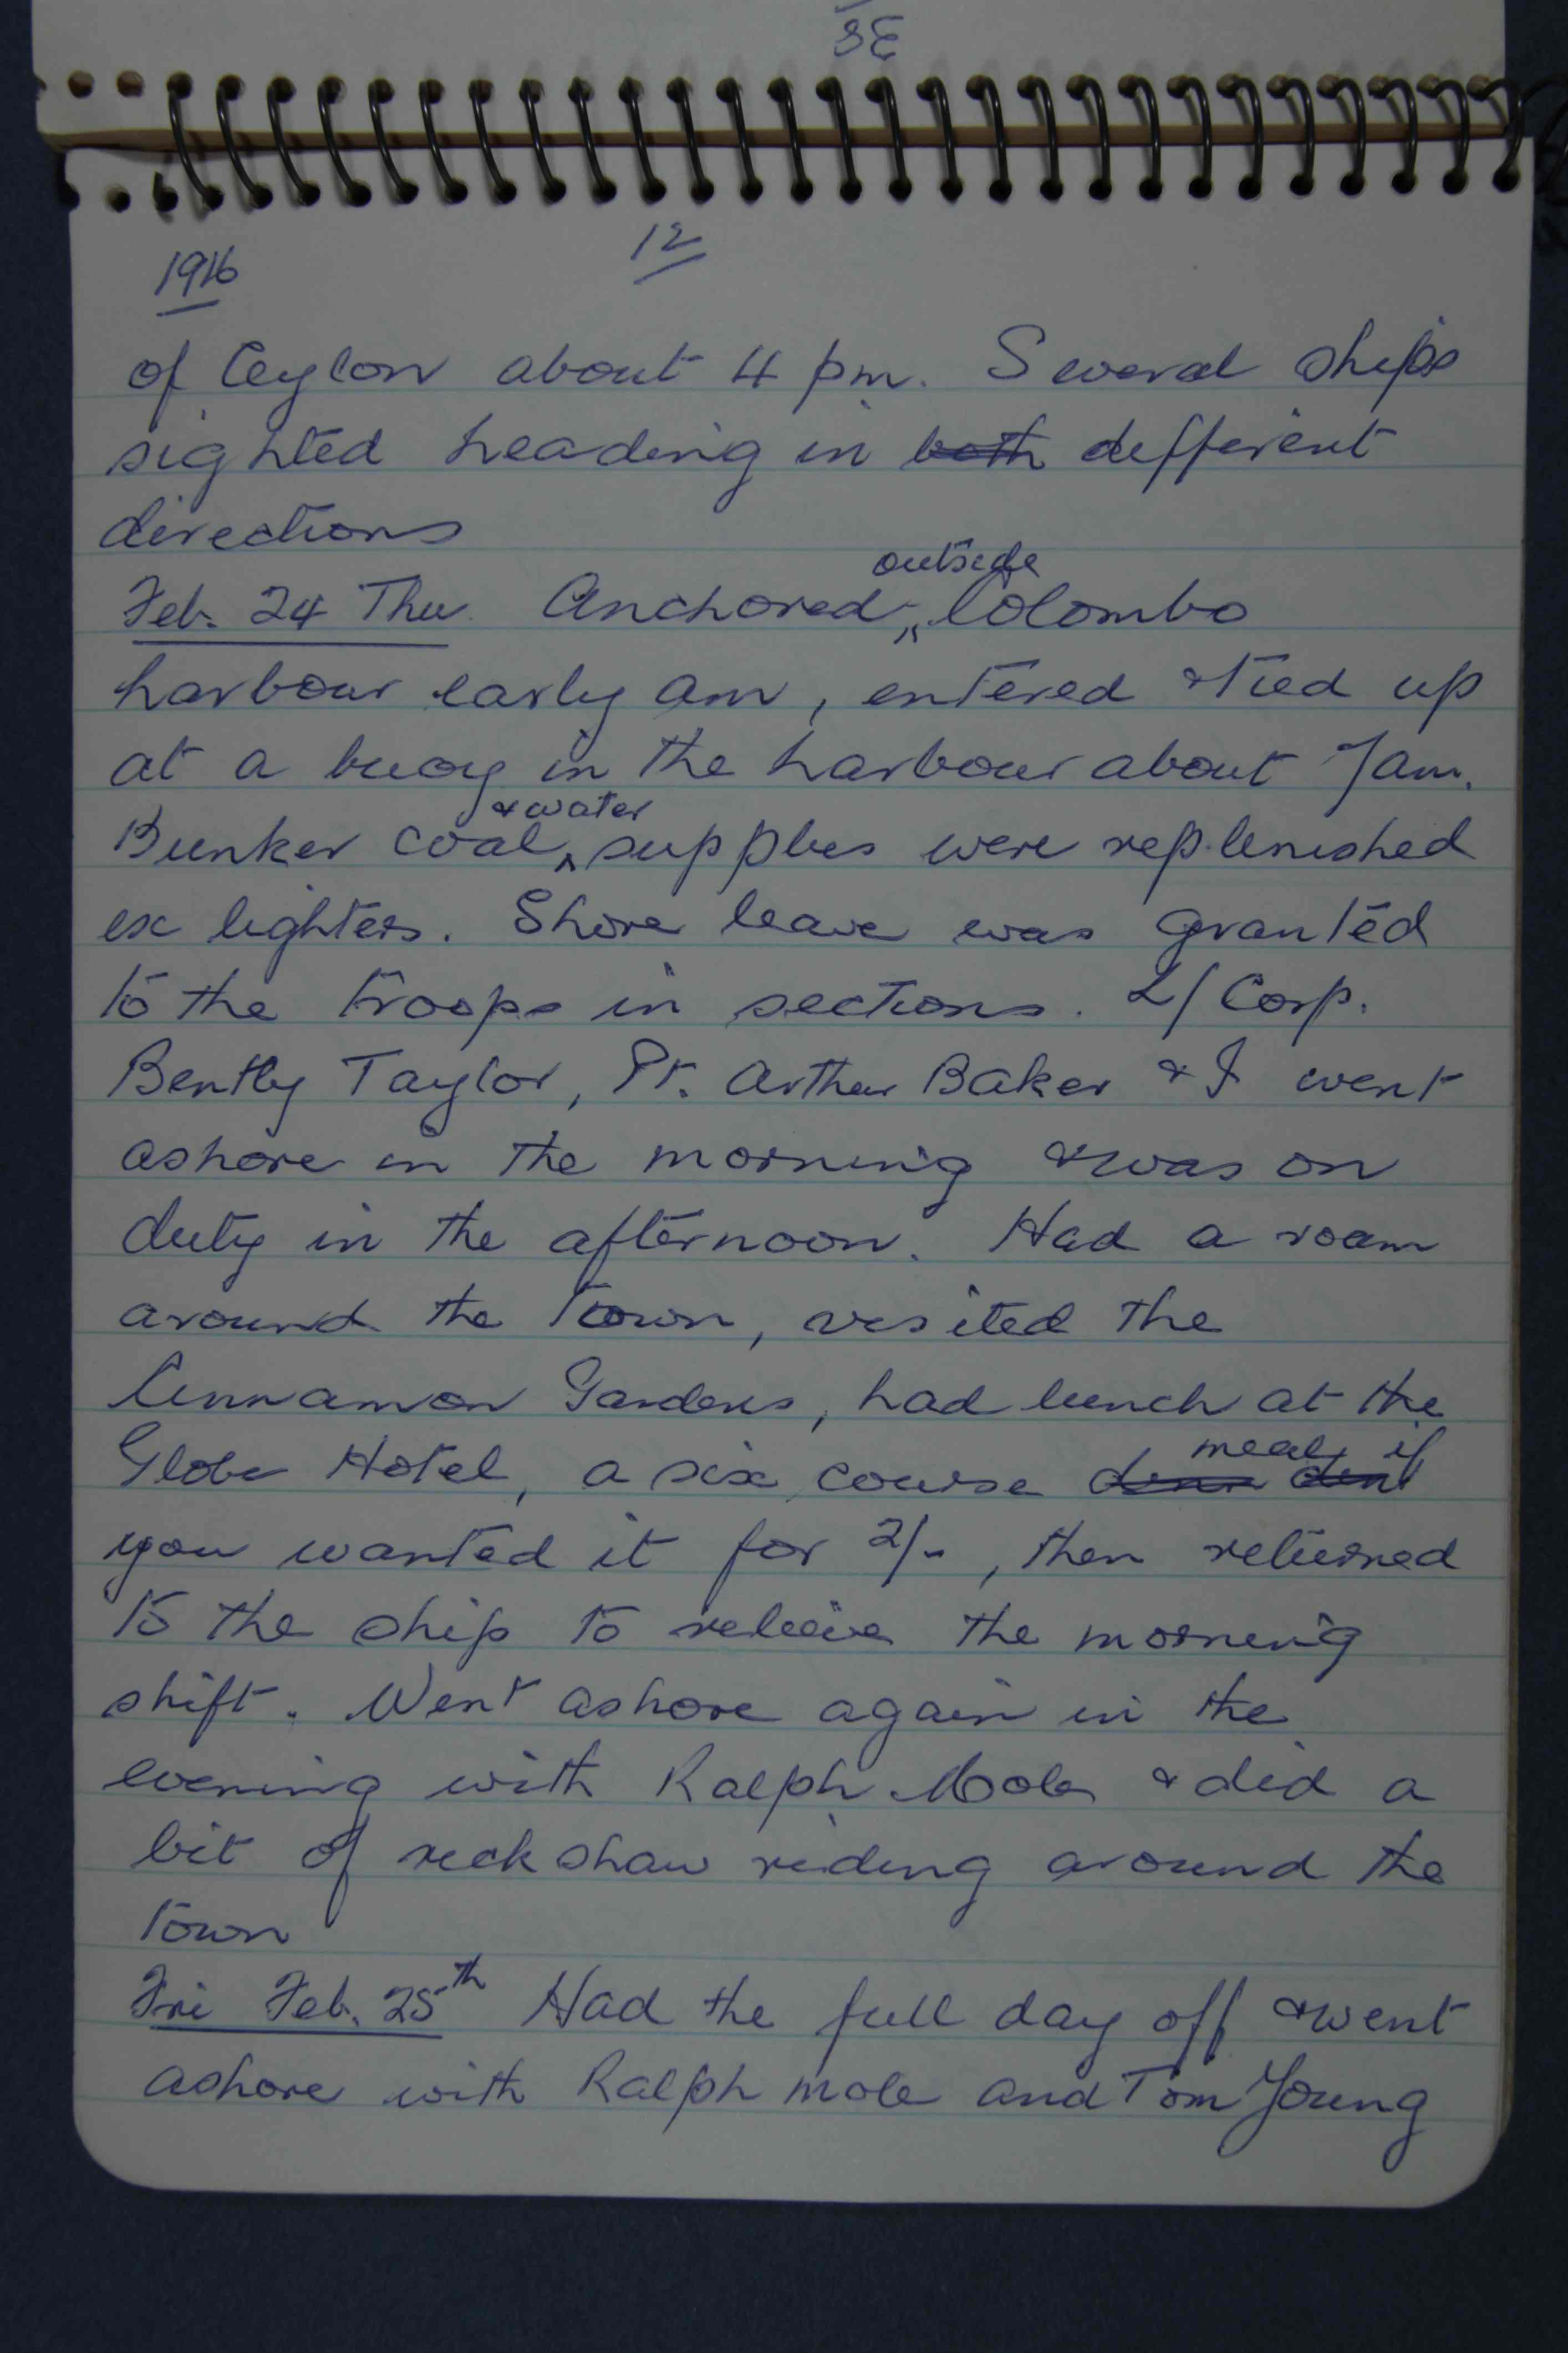 38
1916
12
of Ceylon about 4 pm. Several ships
sighted heading in both different
directions
outside
Feb. 24 Thu Anchored, Colombo
harbour early am, entered & tied up
at a buoy in the harbour about 7am.
& water
Bunker coal, supplies were replenished
ex lighters. Shore leave was granted
to the troops in sections. L/Corp.
Bently Taylor, Pt. Arthur Baker & I went
ashore in the morning & was on
duty in the afternoon. Had a roam
around the town, visited the
Cinnamon Gardens, had lunch at the
meal, if
Globe Hotel, a six course
you wanted it for 2/-, then returned
to the ship to releive the morning
shift. Went ashore again in the
evening with Ralph Mole & did a
bit of rickshaw riding around the
town
Fri Feb. 25th Had the full day off & went
ashore with Ralph Mole and Tom Young